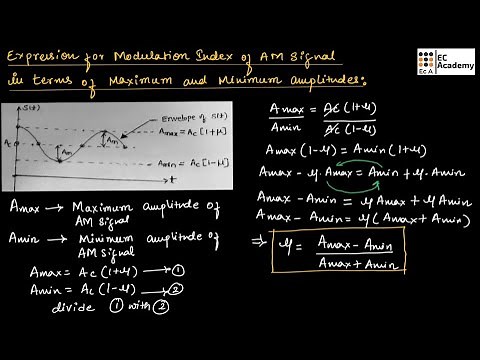 Expression for Modulation Index of AM Signal
in terms of Maximum and Minimum amplitudes:
EC Academy
Ec A
S(t)
Envelope of S(t)
Amax = Ac [1+μ]
Ac
Am
Am
Amin = Ac [1-μ]
t
Amax → Maximum amplitude of
AM Signal
Amin → Minimum amplitude of
AM Signal
Amax = Ac (1+μ) → ①
Amin = Ac (1-μ) → ②
divide ① with ②
Amax / Amin = Ac (1+μ) / Ac (1-μ)
Amax (1-μ) = Amin (1+μ)
Amax - μ Amax = Amin + μ Amin
Amax - Amin = μ Amax + μ Amin
Amax - Amin = μ (Amax + Amin)
⇒ μ = Amax - Amin / Amax + Amin